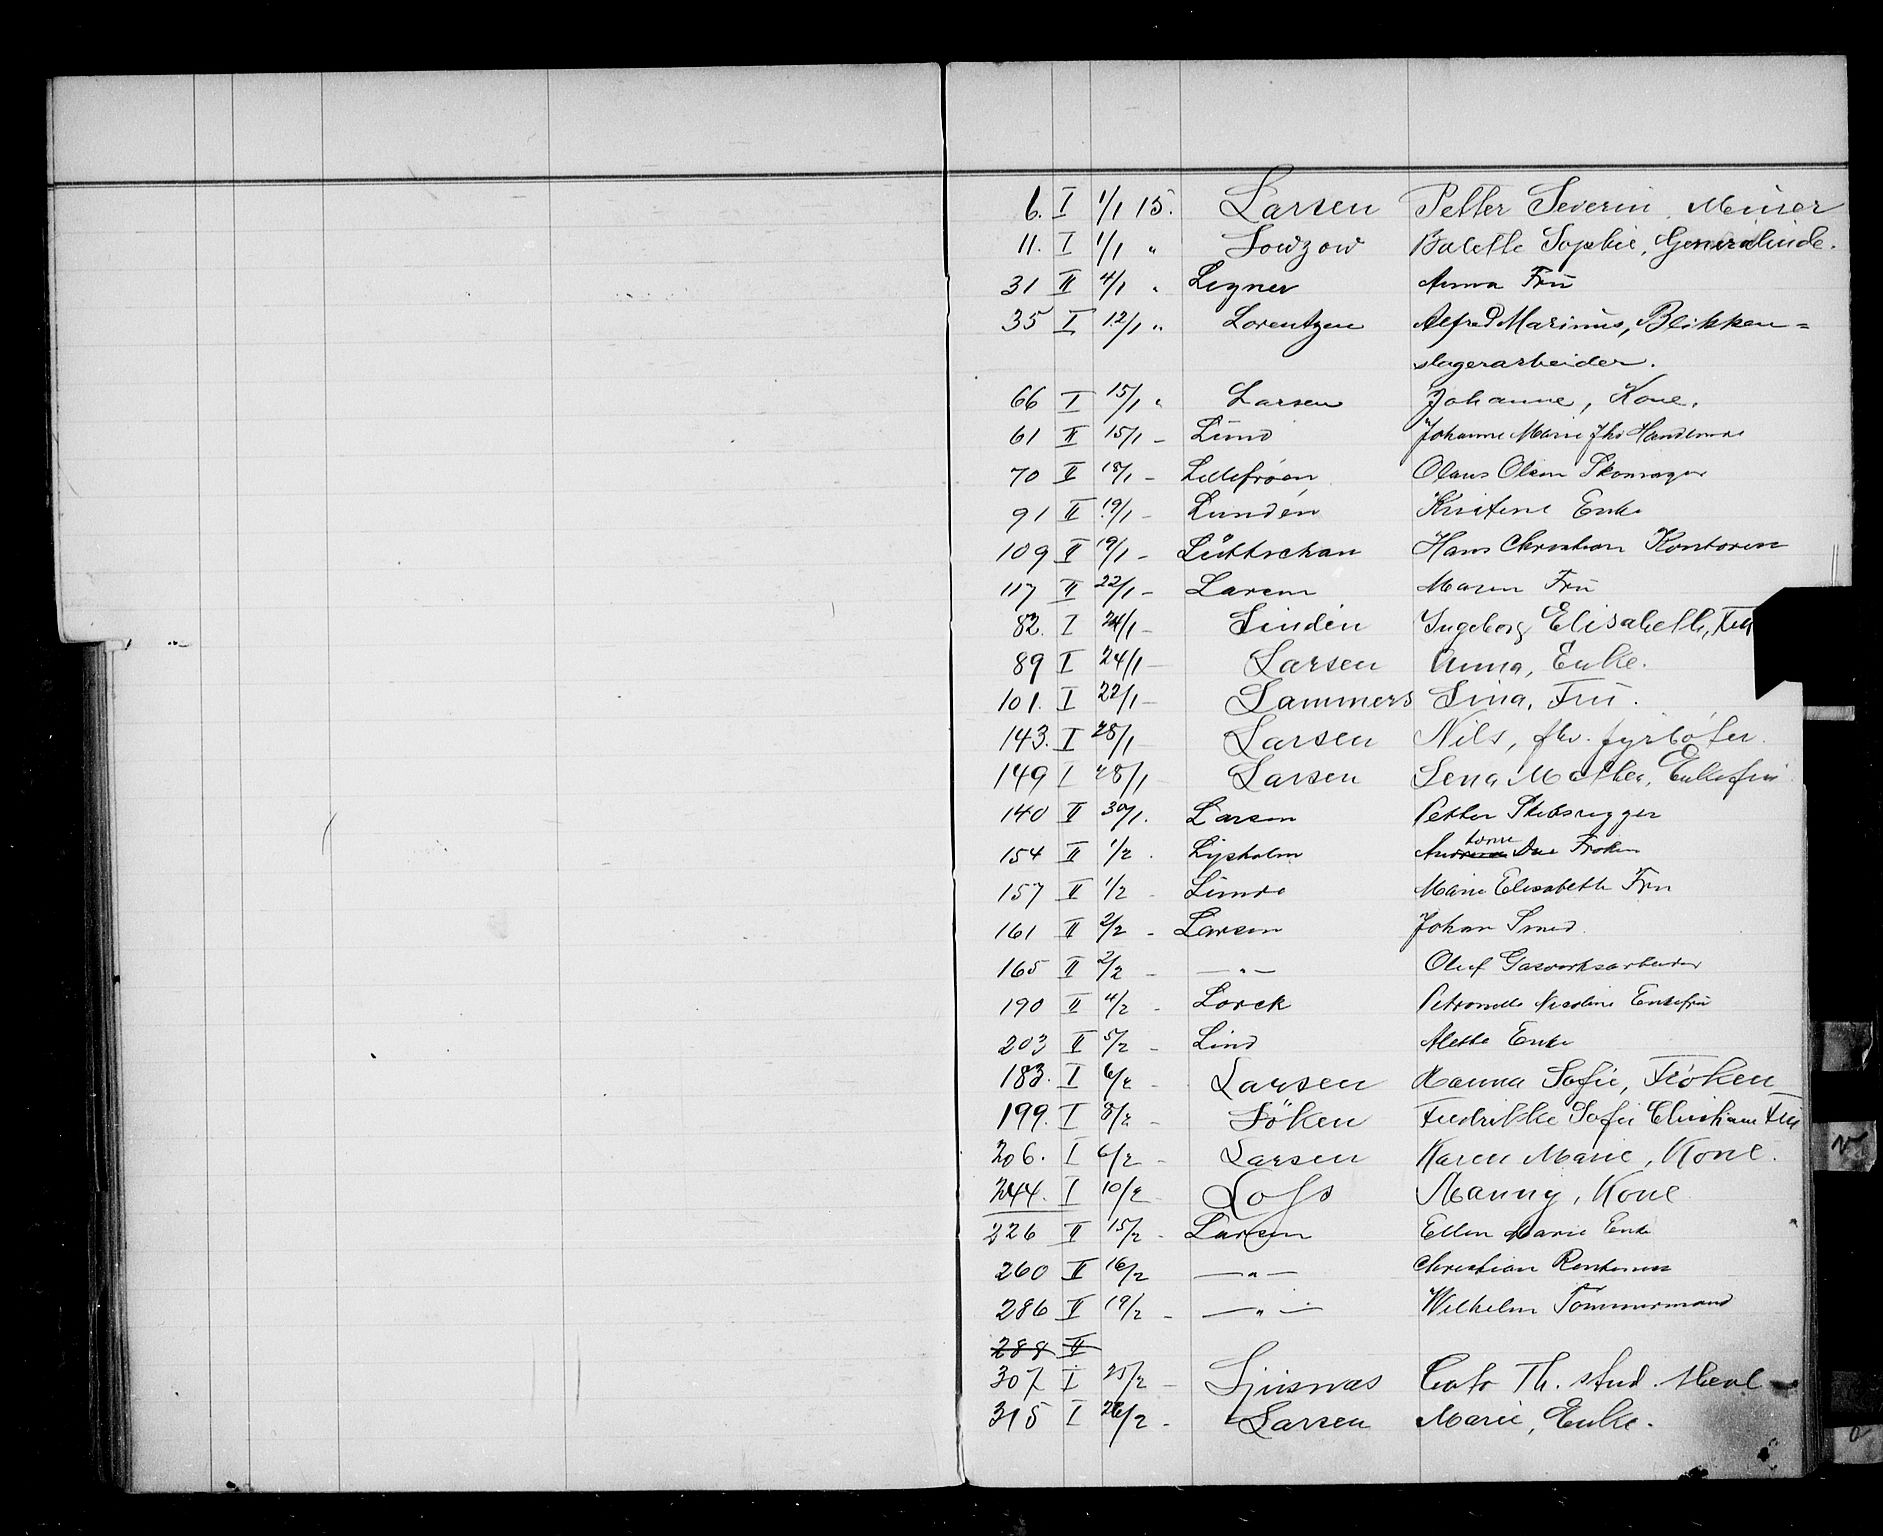 6. I 1/1 15. Larsen Petter Severin, Murer
11. I 1/1 " Lowzow Bolette Sophie, Generalinde.
31 II 4/1 " Legner Anna Fru
35 I 12/1 " Lorentzen Alfred Marinus, Blikken=
slagerarbeider.
66 I 15/1 " Larsen Johanne, Kone.
61 II 15/1 - Lund Johanne Marie fhv Handlerske
70 II 18/1 - Lillefröen Olaus Olsen Skomager
91 II 19/1 - Lundén Kristine Enke
109 II 19/1 - Lüttschau Hans Christian Kontorist
117 II 22/1 - Larsen Maren Fru
82. I 24/1 - Lindén Ingeborg Elisabeth, Fru
89 I 24/1 - Larsen Anna, Enke.
101. I 22/1 - Lammers Lina, Fru.
143. I 28/1 Larsen Nils, fhv. fyrböter.
149 I 28/1 Larsen Lena Mathea, Enkefru
140 II 30/1. Larsen Petter Skibsrigger
154 II 1/2. Lysholm Due Fröken
157 II 1/2 - Marie Elisabeth Fru
161 II 2/2 - Larsen Johan Smed.
165 II 2/2 - —"— Oluf Gasverksarbeider
190 II 4/2 - Lorck Petronelle Nicoline Enkefru
203 II 5/2 - Lind Mette Enke
183. I 6/2 - Larsen Hanna Sofie, Fröken
199. I 8/2 - Löken Fredrikke Sofie Christiane Fru
206. I 6/2 - Larsen Karen Marie, Kone.
244. I 10/2 Lofs Nanny, Kone
226 II 15/2 - Larsen Ellen Marie Enke
260 II 16/2 —"— Christian Rentenist
286 II 19/2 - —"— Wilhelm Tömmermand
288 II
307 I 25/2 - Ljusnæs Cato Th. stud. theol
315 I 26/2 - Larsen Marie, Enke.